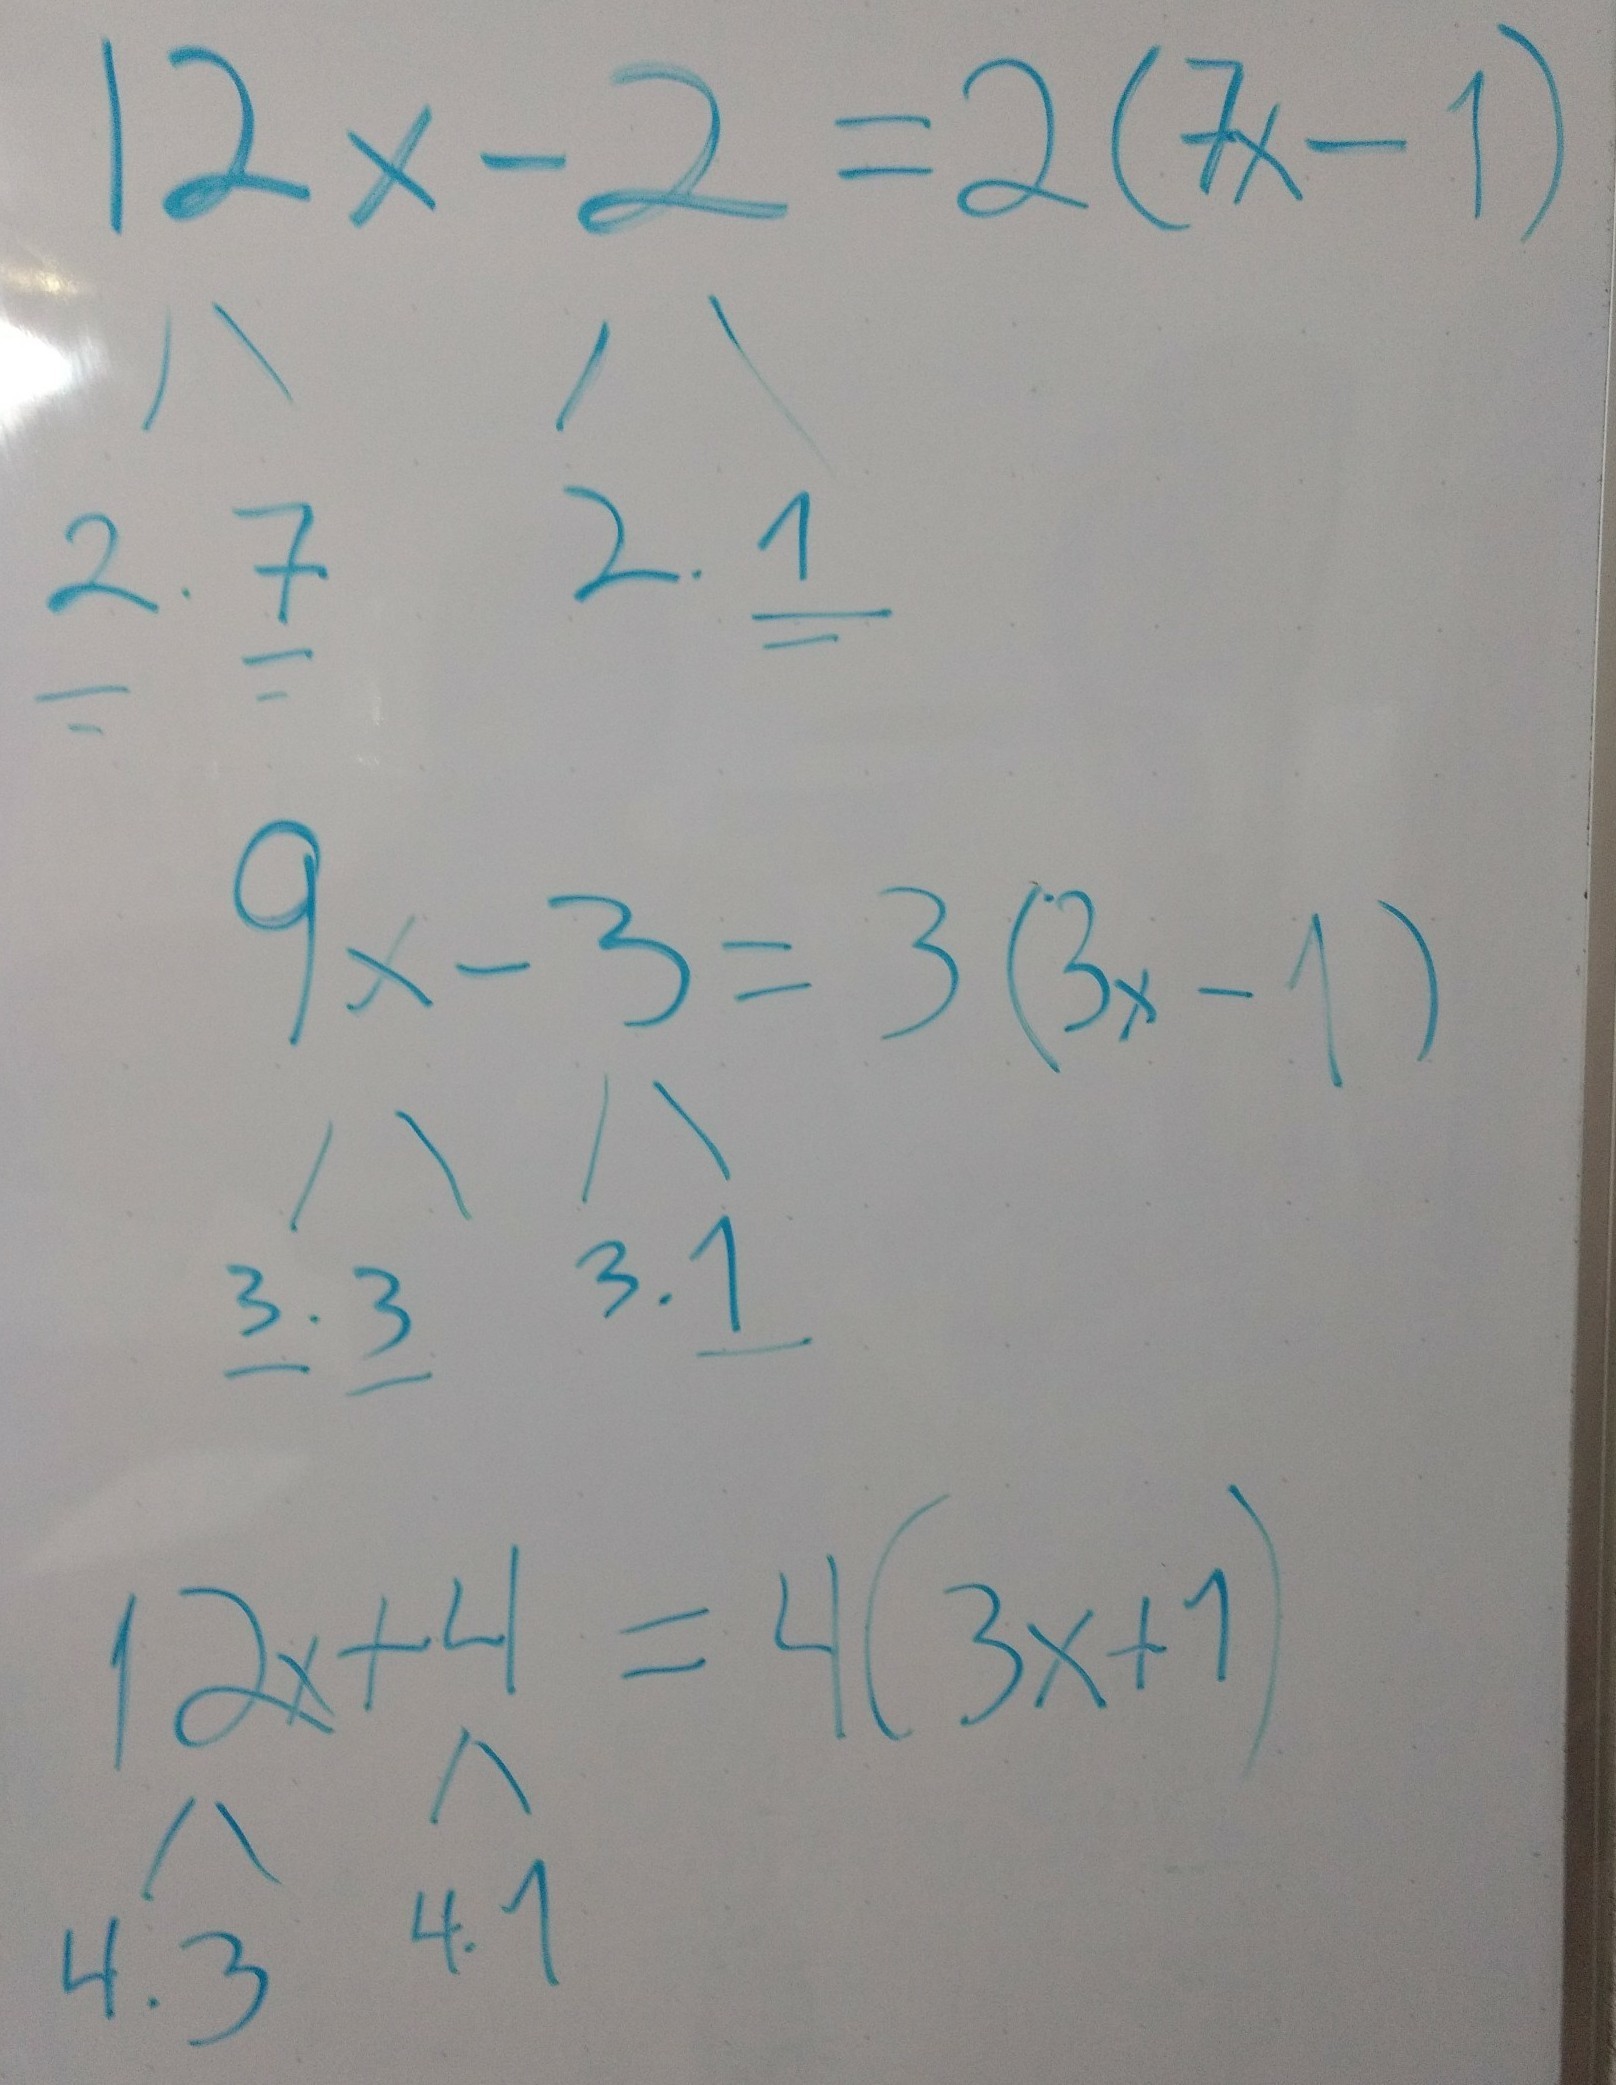 12x-2=2(7x-1)
2.7 2.1
9x-3=3(3x-1)
3.3 3.1
12x+4=4(3x+1)
4.3 4.1